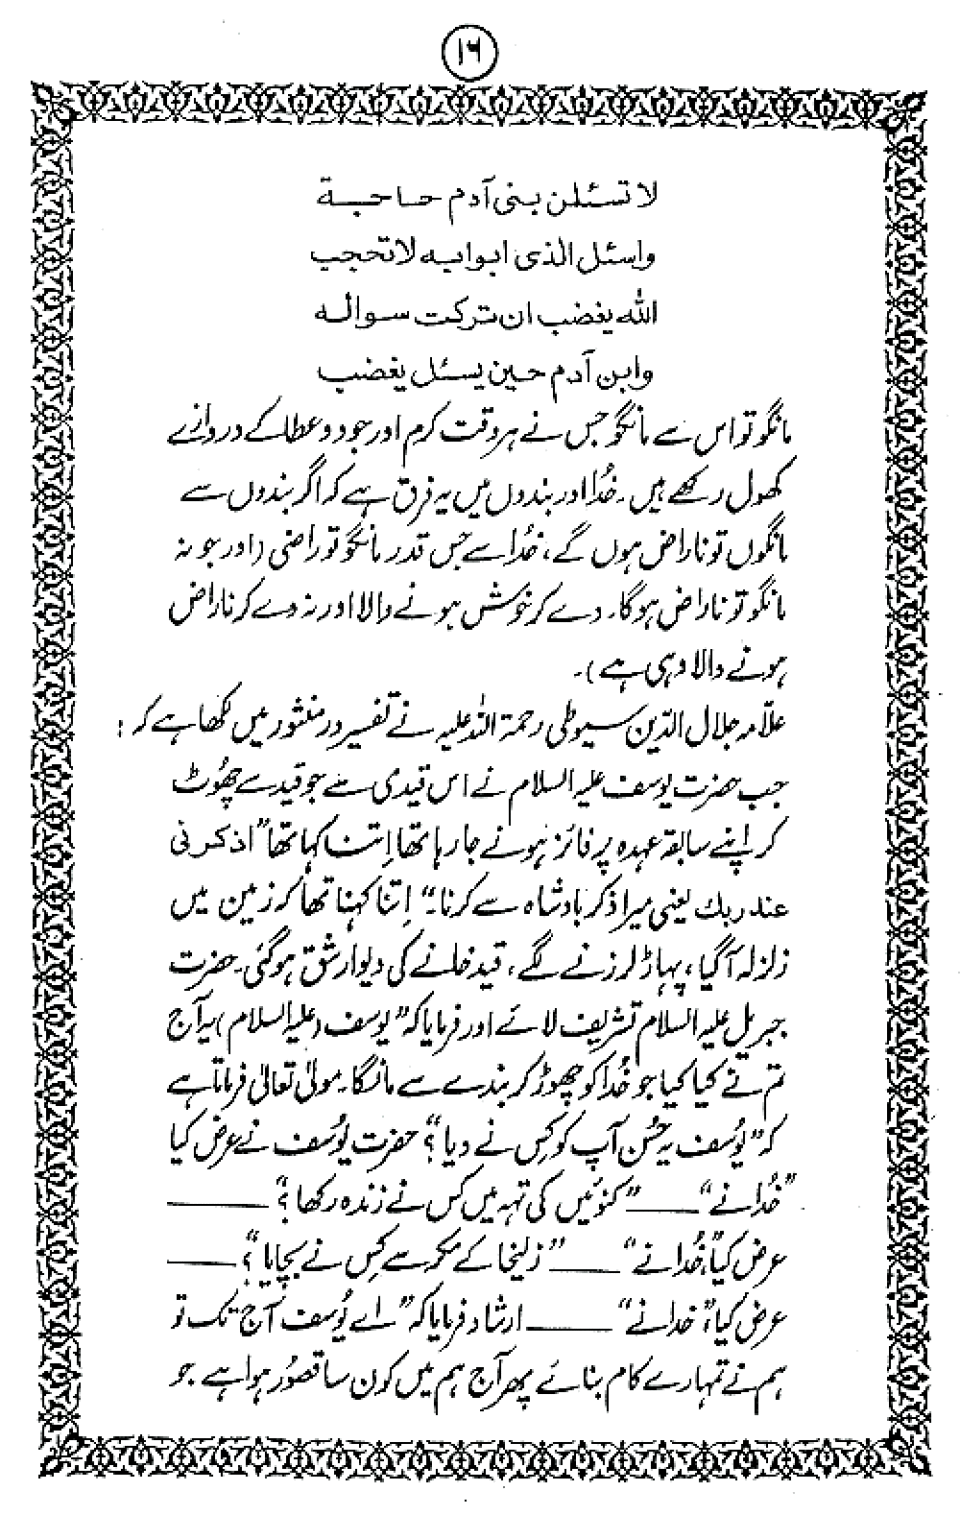 ۱۶
لا تسئلن بنی آدم حاجة
واسئل الذی ابوابه لا تحجب
الله یغضب ان ترکت سواله
وابن آدم حین یسئل یغضب
مانگو تو اس سے مانگو جس نے ہر وقت کرم اور جود و عطا کے دروازے
کھول رکھے ہیں۔ خُدا اور بندوں میں یہ فرق ہے کہ اگر بندوں سے
مانگوں تو ناراض ہوں گے، خُدا سے جس قدر مانگو تو راضی (اور جو نہ
مانگو تو ناراض ہوگا۔ دے کر خوش ہونے والا اور نہ دے کر ناراض
ہونے والا وہی ہے)۔
علّامہ جلال الدّین سیوطی رحمۃ اللہ علیہ نے تفسیر در منثور میں لکھا ہے کہ:
جب حضرت یوسف علیہ السلام نے اس قیدی سے جو قید سے چھُوٹ
کر اپنے سابقہ عہدہ پر فائز ہونے جا رہا تھا اِتنا کہا تھا "اذکرنی
عند ربك یعنی میرا ذکر بادشاہ سے کرنا۔" اِتنا کہنا تھا کہ زمین میں
زلزلہ آگیا، پہاڑ لرزنے لگے، قید خانے کی دیوار شق ہوگئی۔ حضرت
جبریل علیہ السلام تشریف لائے اور فرمایا کہ "یوسف (علیہ السلام) یہ آج
تم نے کیا کیا جو خُدا کو چھوڑ کر بندے سے مانگا۔ مولیٰ تعالیٰ فرماتا ہے
کہ "یُوسف یہ حُسن آپ کو کِس نے دیا؟" حضرت یوُسف نے عرض کیا
"خُدا نے" ــــــ "کنوئیں کی تہہ میں کس نے زندہ رکھا؟" ــــــ
عرض کیا، "خُدا نے" ــــــ "زلیخا کے مکر سے کِس نے بچایا؟" ــــــ
عرض کیا، "خدا نے" ــــــ ارشاد فرمایا کہ "اے یُوسف آج تک تو
ہم نے تمہارے کام بنائے پھر آج ہم میں کون سا قصُور ہوا ہے جو